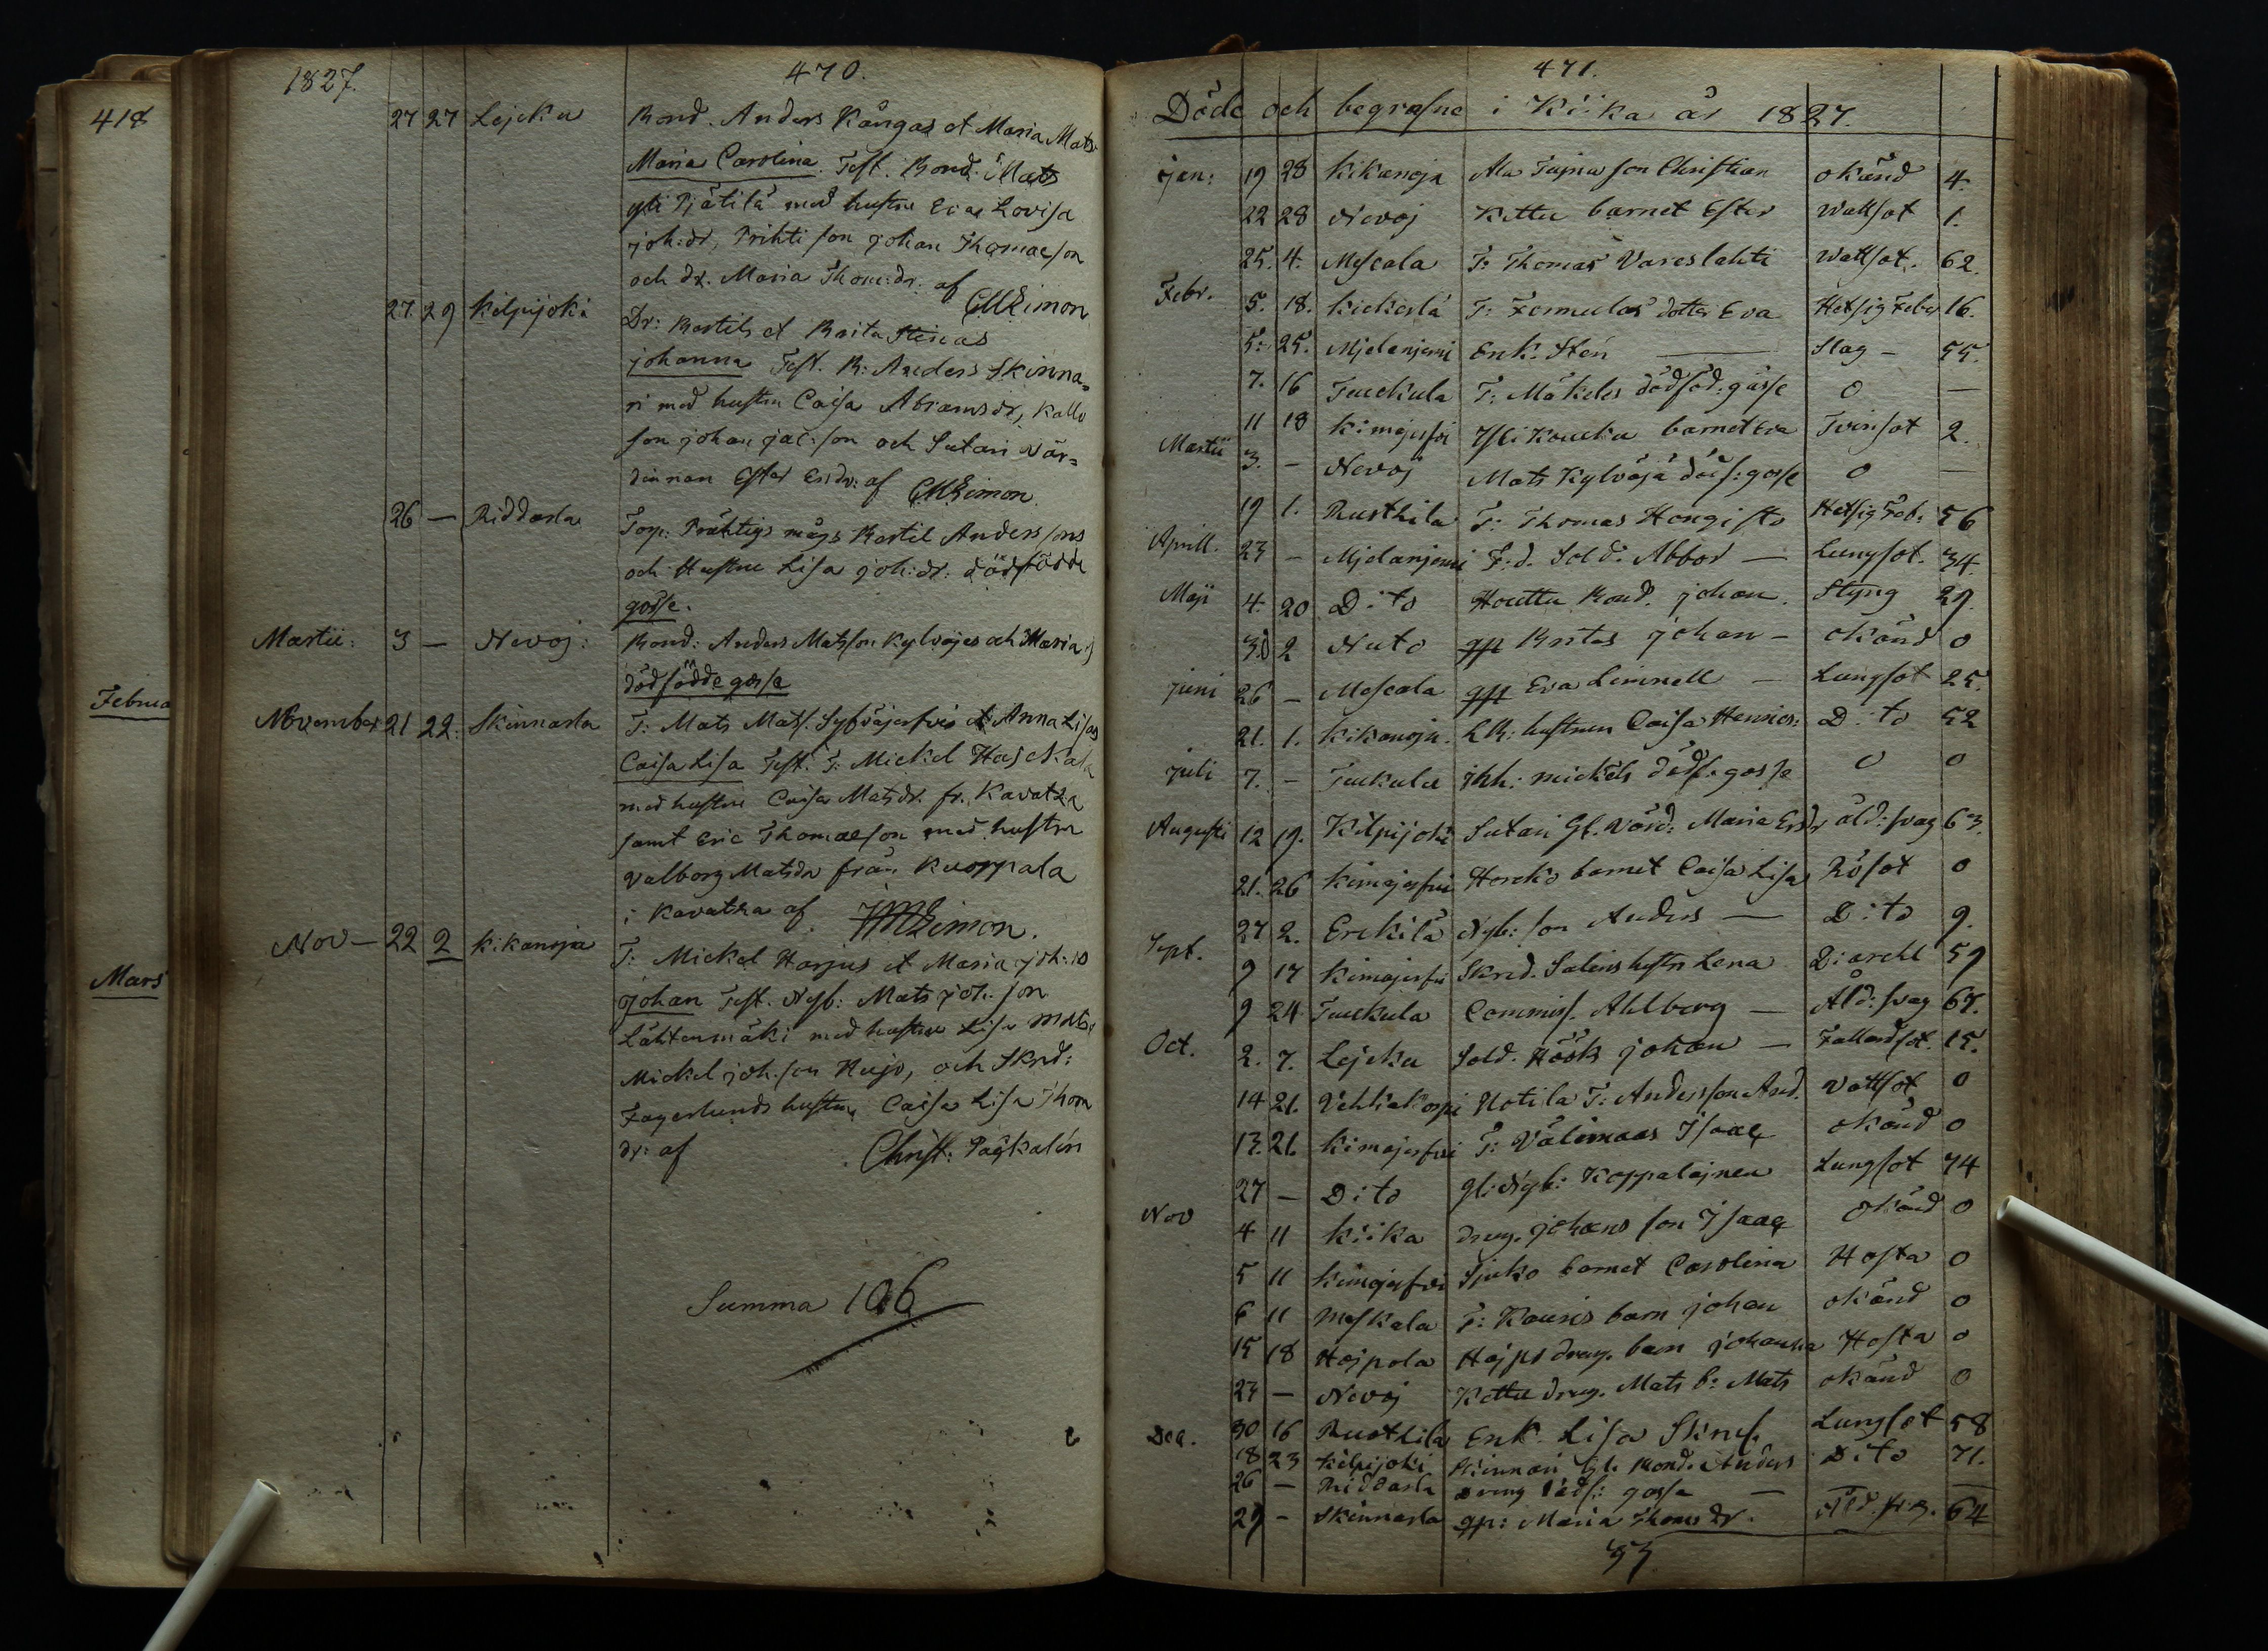 418
Februa
Mars
1827. 470.
27 27 Lejcku Bond. Anders Kångas et Maria Mats
Maria Carolina. Test. Bond. Mats
yli Pjätilä med hustru Eva Lovisa
joh:dr, Prihti son johan Thomaeson
och dr. Maria Thom:dr. af CMLimon
27. 29 Kilpijoki Dr: Bertils et Brita Stinas
johanna Test. B: Anders Skinna=
ri med hustru Caisa Abramsdr, Kallo
son johan jac:son och Sutari vär=
dinnan Ester Ersdr: af CMLimon.
26 — Riddarla Torp. Prähtigs mågs Bertil Anderssons
och Hustru Lisa joh:dr: dödfödde
gosse.
Martii: 3 — Nevoj: Bond: Anders Matsson Kylvöjas och Maria
dödfödde gosse
November 21 22. Skinnarla T: Mats Mats. Sylväjerfvis et Anna Lisas
Caisa Lisa Test. T: Mickel Haschala
med hustru Caisa Matsdr. fr. Kavatza
samt Eric Thomaeson med hustru
Valborg Matsdr från Kuoppala
i Kavatza af Limon.
Nov — 22 2 Kikanoja T: Mickel Harjus et Maria joh:
johan Test. Nyb: Mats joh. son
Lähtenmäki med hustru Lisa Mats
Mickel joh. son Hujo, och Skrd:
Fagerlunds hustru Caisa Lisa Thom
dr: af Christ: Pagkalén
Summa 106
471.
Döde och begrafne i Kiika år 1827.
jan: 19 28 Kikanoja Ala Tajpus son Christian okänd 4.
22 28 Nevoj Kettu barnet Ester Wattsot 1.
25. 4. Mescala T: Thomas Vareslahti Wattsot. 62.
Febr. 5. 18. Kickerlä T: Formulas dotter Eva Hetsig Feber 16.
5: 25. Mjelanjemi Enk. Stén — Slag — 55.
7. 16 Tuckula T: Mäkelas dödföd: gosse 0 —
11 18 Kimajerfvi Koucku barnet Eva Tvinsot 2.
Martii 3. — Nevoj Mats Kylväjä dödf: gosse 0 —
19 1. Rusthila T: Thomas Hongisto Hetsig Feb: 56
Aprill. 23 — Mjelanjemi F.d. Sold. Abbor — Lungsot. 34.
Maji 4. 20 Dito Houttu Bond. johan. Styng 29.
30 2 Nuto qp Britas johan — okänd 0
juni 26 — Mescala qp Eva Limnell — Lungsot 25.
21. 1. Kikanoja. hustrun Caisa Henrics: Dito 52
juli 7. — Tuckula Ihh: mickels dödf. gosse 0 0
Augusti 12 19. Kilpijoki Sutari Gl. Värd: Maria Ersdr åld: svag 63.
21. 26 Kimajerfvi Horcko barnet Caisa Lisa Rösot 0
27 2. Erckilä Nyb: son Anders — Dito 9.
Sept. 9 17 Kimajerfvi Skred. Salens hustru Lena Diarehl 59
9 24 Tuckula Commiss. Ahlberg — Åld: svag 67.
Oct. 2. 7. Lejcku Sold. Höök johan — Fallandsot. 15.
14 21. Vehkakorpi Notila T: Anders son And. vattsot 0
17. 21. Kimajerfvi T: Välimaas Isaac okänd 0
27 — Dito Gl: Nyb: Koppalajnen Lungsot 74
Nov 4 11 Kiika dreng. johans son Isaac okänd 0
5 11 Kimajerfvi Sjuko barnet Carolina Hosta 0
6 11 Meskala T: Kauris barn johan okänd 0
15 18 Hojpola Hojps dreng. barn johanna Hosta 0
23 — Nevoj Kettu dreng. Mats b: Mats okänd 0
30 16 Rusthila Enk. Lisa Lungsot 58
Dec. 18 23 Kilpijoki Skinnari Gl. Bond. Anders Dito 71.
26 — Riddarla dreng dödf: gosse — —
29 — Skinnarla qp: Maria Thomsdr. 64
33